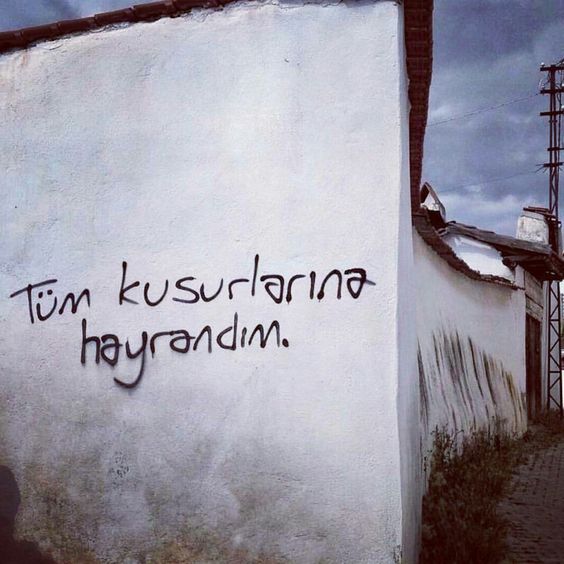 Tüm kusurlarına
hayrandım.